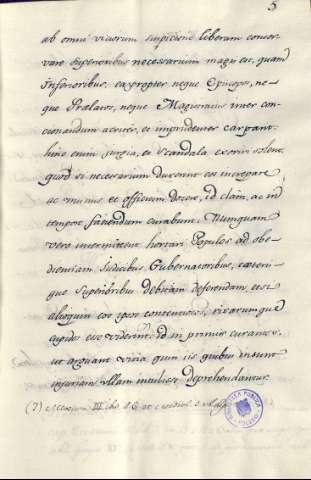 5
ab omni vitiorum suspicione liberam conser
vare superioribus necessarium magis est, quam
inferioribus; eapropter neque Episcopos, ne
que Prælatos, neque Magistratus inter con
cionandum acriter, et imprudenter carpant:
hinc enim jurgia, et scandala exoriri solent,
quod si necessarium duxerint eos increpare
ac munus et officium docere, id clam, ac in
tempore faciendum curabunt. Numquam
vero intermittent hortari Populos ad obe
dientiam Judicibus Gubernatoribus, cæteris
que Superioribus debitam deferendam, etsi
alioquin eos ipsos contentiosos, rixarumque
cupidos esse viderint: id in primis curantes,
ut arguant vitia quin iis quibus insunt
injuriam ullam intulisse deprehendantur.
(7) III